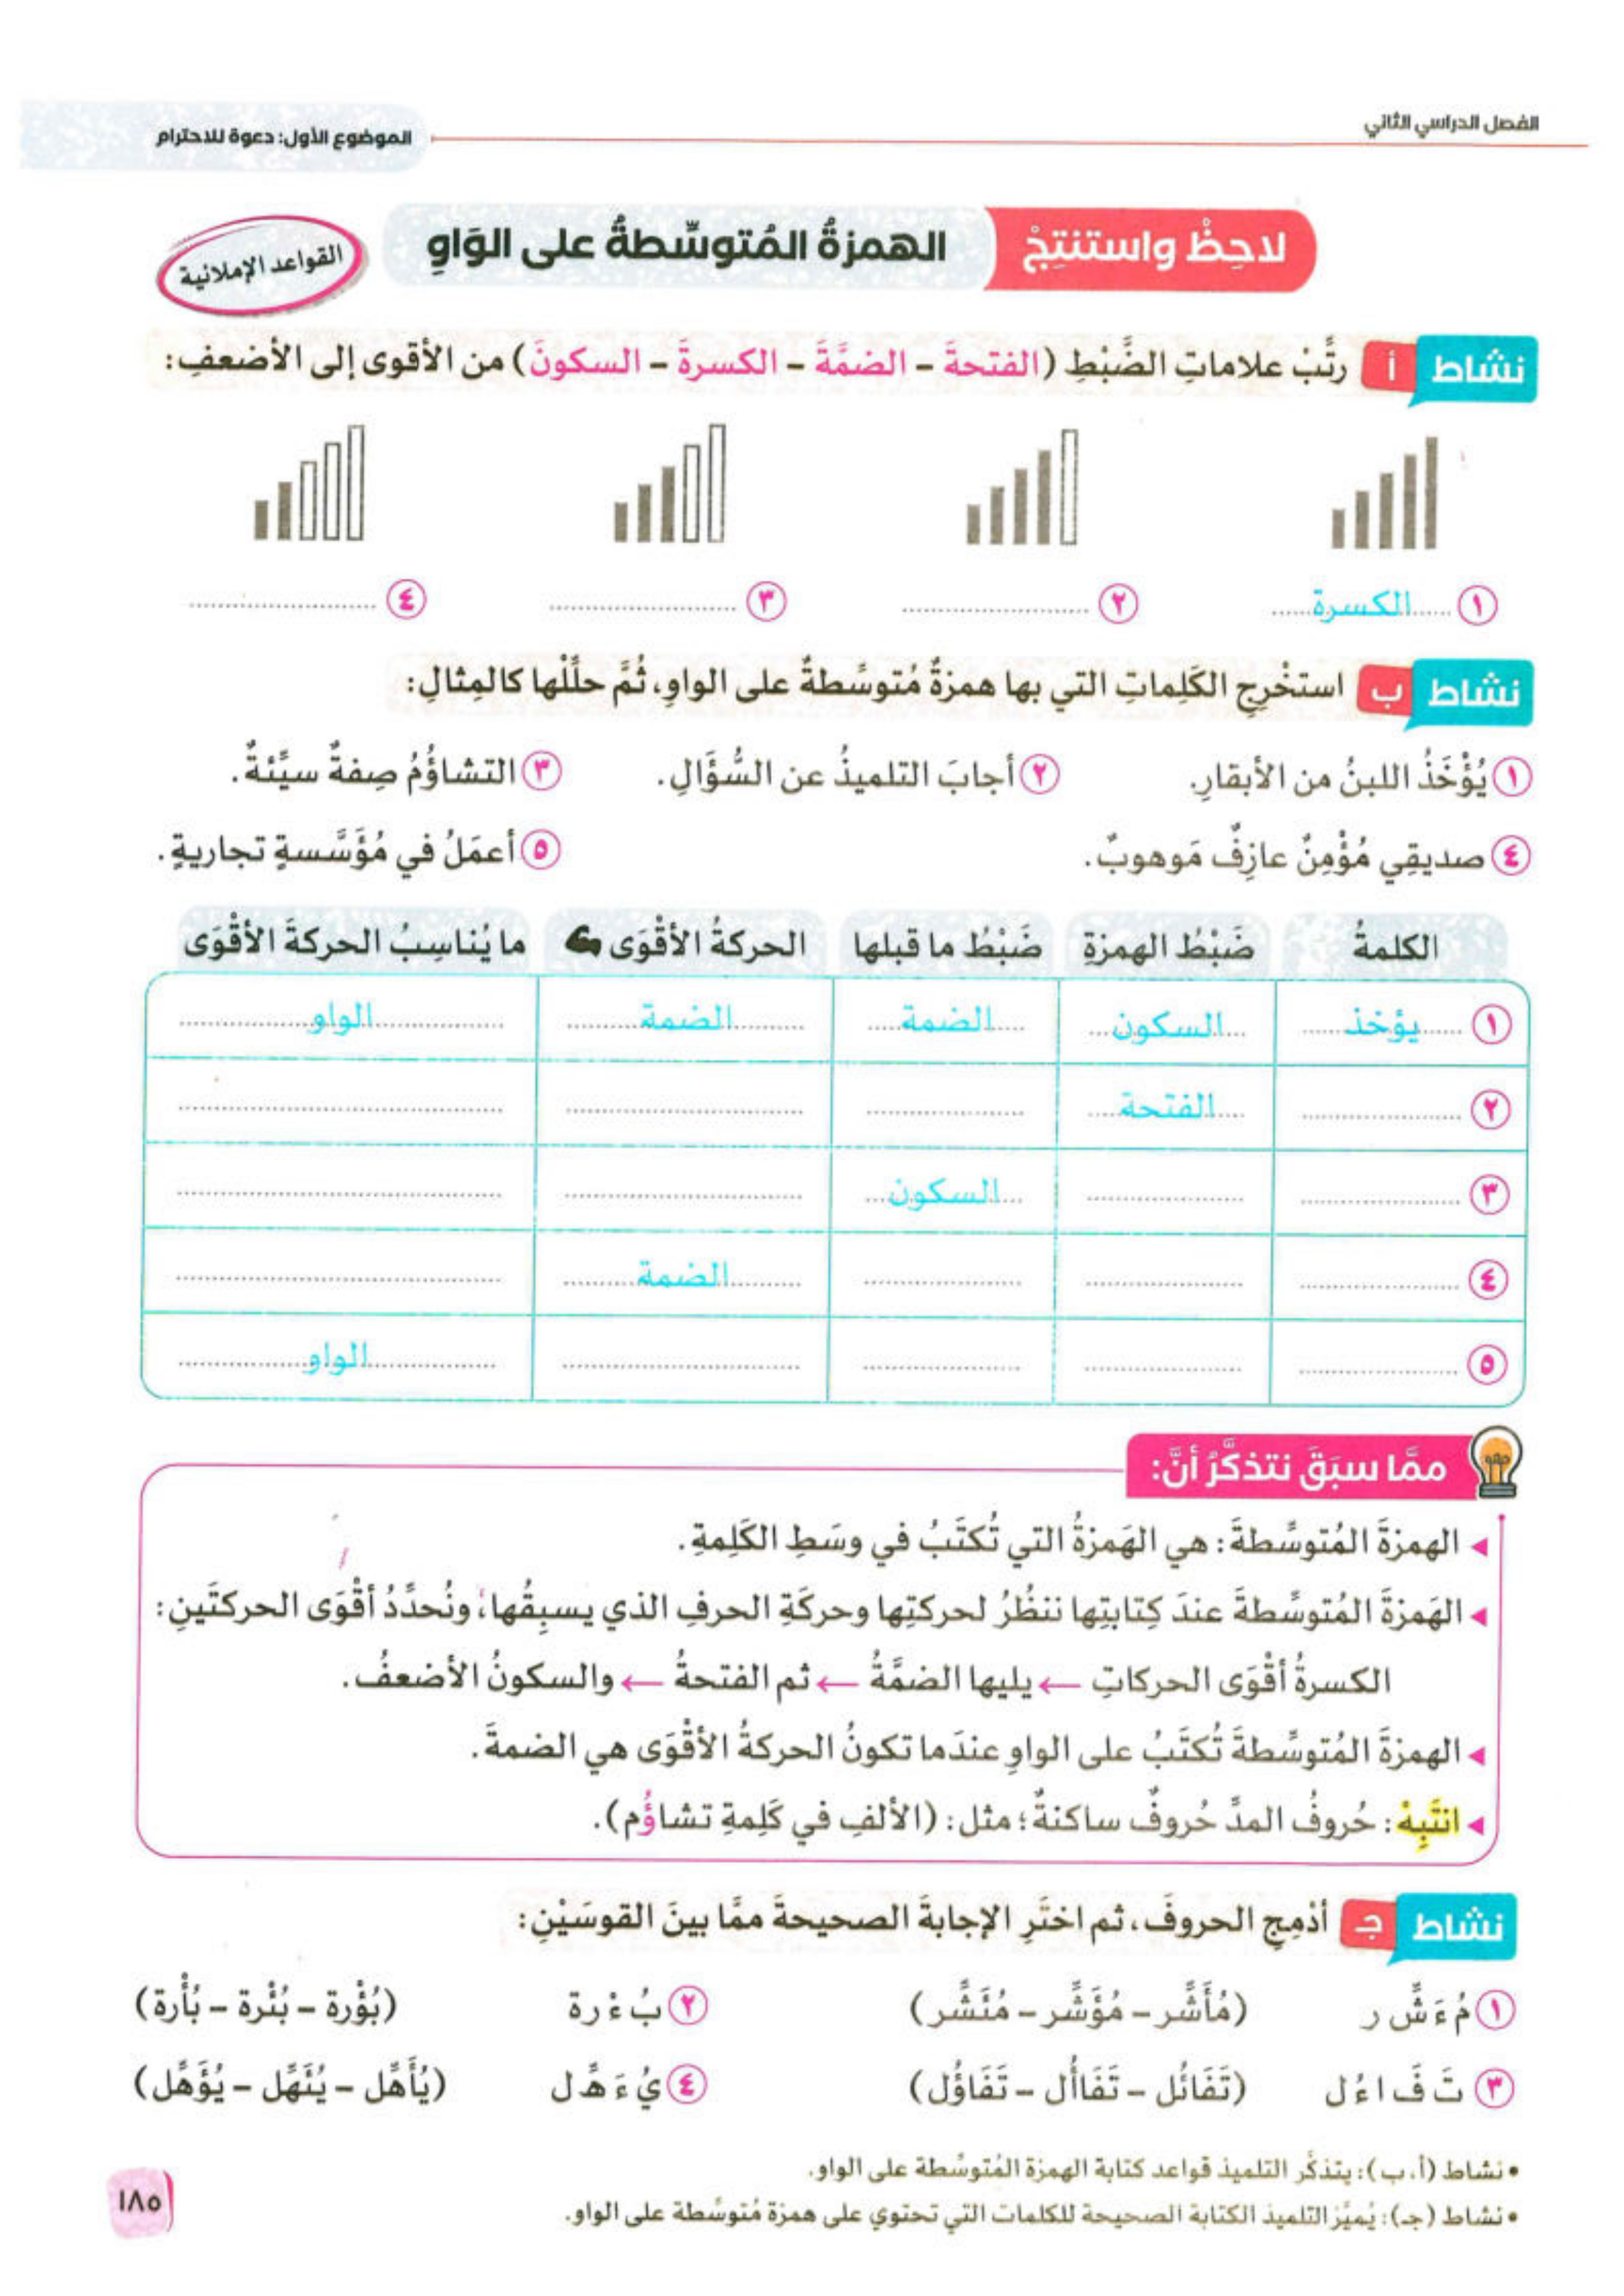 الفصل الدراسي الثاني
الموضوع الأول: دعوة للاحترام
لاحِظْ واستنتِجْ
الهمزةُ المُتوسِّطةُ على الوَاوِ
القواعد الإملائية
نشاط أ رتِّبْ علاماتِ الضَّبْطِ (الفتحةَ – الضمَّةَ – الكسرةَ – السكونَ) من الأقوى إلى الأضعفِ:
١ ......الكسرة...... ٢ .................... ٣ .................... ٤ ....................
نشاط ب استخْرِجِ الكَلِماتِ التي بها همزةٌ مُتوسِّطةٌ على الواوِ، ثُمَّ حلِّلْها كالمِثالِ:
١ يُؤْخَذُ اللبنُ من الأبقارِ. ٢ أجابَ التلميذُ عن السُّؤَالِ. ٣ التشاؤُمُ صِفةٌ سيِّئةٌ.
٤ صديقِي مُؤْمِنٌ عازِفٌ مَوهوبٌ. ٥ أعمَلُ في مُؤَسَّسةٍ تجاريةٍ.
الكلمةُ ضَبْطُ الهمزةِ ضَبْطُ ما قبلها الحركةُ الأقْوَى ما يُناسِبُ الحركةَ الأقْوَى
١ يؤخذ السكون الضمة الضمة الواو
٢ الفتحة
٣ السكون
٤ الضمة
٥ الواو
ممَّا سبَقَ نتذكَّرُ أنَّ:
الهمزةَ المُتوسِّطةَ: هي الهَمزةُ التي تُكتَبُ في وسَطِ الكَلِمةِ.
الهَمزةَ المُتوسِّطةَ عندَ كِتابتِها ننظُرُ لحركتِها وحركَةِ الحرفِ الذي يسبِقُها، ونُحدِّدُ أقْوَى الحركتَين:
الكسرةُ أقْوَى الحركاتِ ← يليها الضمَّةُ ← ثم الفتحةُ ← والسكونُ الأضعفُ.
الهمزةَ المُتوسِّطةَ تُكتَبُ على الواوِ عندَما تكونُ الحركةُ الأقْوَى هي الضمةَ.
انتَبِهْ: حُروفُ المدِّ حُروفٌ ساكنةٌ؛ مثل: (الألفِ في كَلِمةِ تشاؤُم).
نشاط جـ أدْمِجِ الحروفَ، ثم اختَرِ الإجابةَ الصحيحةَ ممَّا بينَ القوسَيْنِ:
١ مُ ءَ شِّ ر (مُأَشِّر – مُؤَشِّر – مُئَشِّر) ٢ بُ ءْ ر ة (بُؤْرة – بُئْرة – بُأْرة)
٣ تَ فَ ا ءُ ل (تَفَائُل – تَفَاأُل – تَفَاؤُل) ٤ يُ ءَ هِّ ل (يُأَهِّل – يُئَهِّل – يُؤَهِّل)
• نشاط (أ، ب): يتذكَّر التلميذ قواعد كتابة الهمزة المُتوسِّطة على الواو.
• نشاط (جـ): يُميِّز التلميذ الكتابة الصحيحة للكلمات التي تحتوي على همزة مُتوسِّطة على الواو.
١٨٥